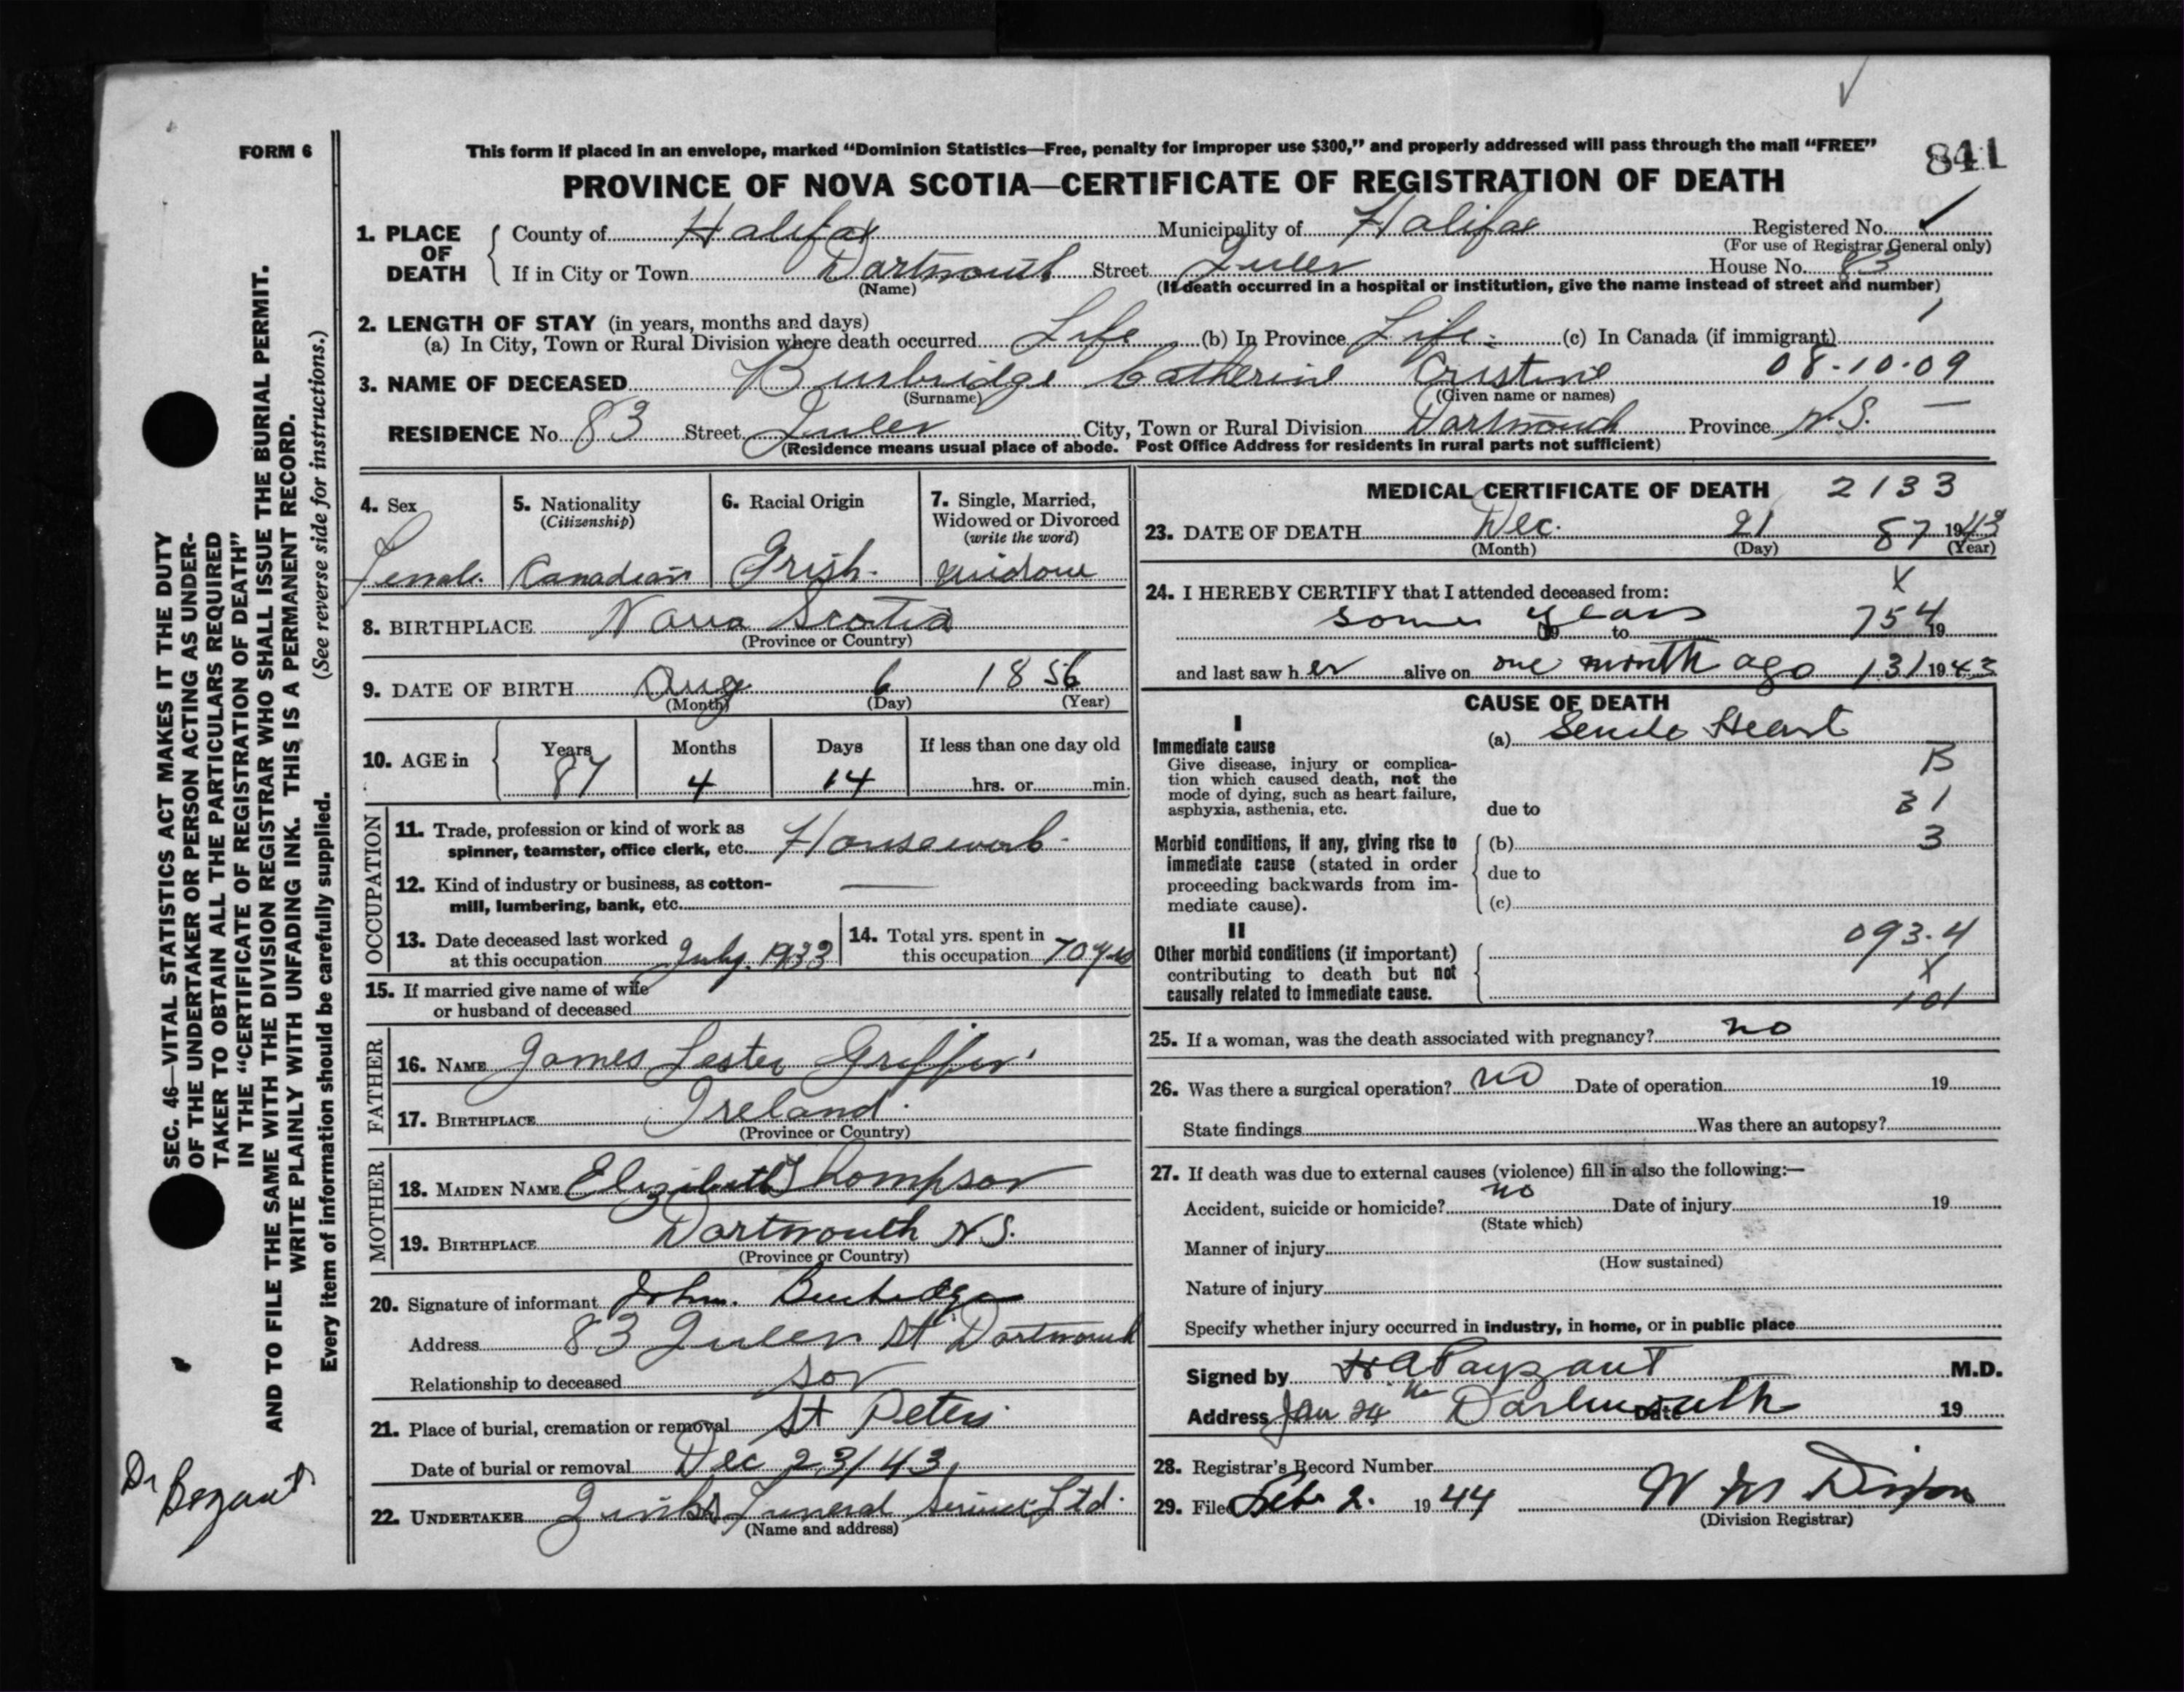 FORM 6
This form if placed in an envelope, marked “Dominion Statistics—Free, penalty for improper use $300,” and properly addressed will pass through the mail “FREE”
841
PROVINCE OF NOVA SCOTIA—CERTIFICATE OF REGISTRATION OF DEATH
1. PLACE OF DEATH
County of Halifax Municipality of Halifax Registered No.
(For use of Registrar General only)
If in City or Town Dartmouth Street House No. 83
(Name) (If death occurred in a hospital or institution, give the name instead of street and number)
2. LENGTH OF STAY (in years, months and days)
(a) In City, Town or Rural Division where death occurred Life (b) In Province Life (c) In Canada (if immigrant)
3. NAME OF DECEASED Burbridge Catherine Cristine 08-10-09
(Surname) (Given name or names)
RESIDENCE No. 83 Street City, Town or Rural Division Dartmouth Province N.S. —
(Residence means usual place of abode. Post Office Address for residents in rural parts not sufficient)
4. Sex
Female
5. Nationality
(Citizenship)
Canadian
6. Racial Origin
Irish
7. Single, Married,
Widowed or Divorced
(write the word)
widow
8. BIRTHPLACE Nova Scotia
(Province or Country)
9. DATE OF BIRTH Aug 6 1856
(Month) (Day) (Year)
10. AGE in
Years Months Days If less than one day old
87 4 14 hrs. or min.
OCCUPATION
11. Trade, profession or kind of work as
spinner, teamster, office clerk, etc. Housework
12. Kind of industry or business, as cotton-
mill, lumbering, bank, etc. —
13. Date deceased last worked
at this occupation July 1933
14. Total yrs. spent in
this occupation 70 yrs
15. If married give name of wife
or husband of deceased
FATHER
16. NAME James Lester Griffin
17. BIRTHPLACE Ireland
(Province or Country)
MOTHER
18. MAIDEN NAME Elizabeth Thompson
19. BIRTHPLACE Dartmouth N.S.
(Province or Country)
20. Signature of informant John Burbidge
Address 83 St Dartmouth
Relationship to deceased son
21. Place of burial, cremation or removal St Peters
Date of burial or removal Dec 23/43
22. UNDERTAKER Funeral Service Ltd.
(Name and address)
MEDICAL CERTIFICATE OF DEATH 2133
23. DATE OF DEATH Dec. 21 87 1943
(Month) (Day) (Year)
24. I HEREBY CERTIFY that I attended deceased from: X
some years 19 to 754 19
and last saw her alive on one month ago 131 1943
CAUSE OF DEATH
I
Immediate cause
Give disease, injury or complica-
tion which caused death, not the
mode of dying, such as heart failure,
asphyxia, asthenia, etc.
(a) Senile Heart
B
31
due to
Morbid conditions, if any, giving rise to
immediate cause (stated in order
proceeding backwards from im-
mediate cause).
(b) 3
due to
(c)
II
Other morbid conditions (if important)
contributing to death but not
causally related to immediate cause.
093.4
X
101
25. If a woman, was the death associated with pregnancy? no
26. Was there a surgical operation? no Date of operation 19
State findings Was there an autopsy?
27. If death was due to external causes (violence) fill in also the following:—
Accident, suicide or homicide? no Date of injury 19
(State which)
Manner of injury
(How sustained)
Nature of injury
Specify whether injury occurred in industry, in home, or in public place
Signed by H A Payzant M.D.
Address Jan 24 Dartmouth Date 19
28. Registrar's Record Number
29. Filed Feb 2. 1944 Dixon
(Division Registrar)
SEC. 46—VITAL STATISTICS ACT MAKES IT THE DUTY
OF THE UNDERTAKER OR PERSON ACTING AS UNDER-
TAKER TO OBTAIN ALL THE PARTICULARS REQUIRED
IN THE “CERTIFICATE OF REGISTRATION OF DEATH”
AND TO FILE THE SAME WITH THE DIVISION REGISTRAR WHO SHALL ISSUE THE BURIAL PERMIT.
WRITE PLAINLY WITH UNFADING INK. THIS IS A PERMANENT RECORD.
Every item of information should be carefully supplied. (See reverse side for instructions.)
Dr Bezant